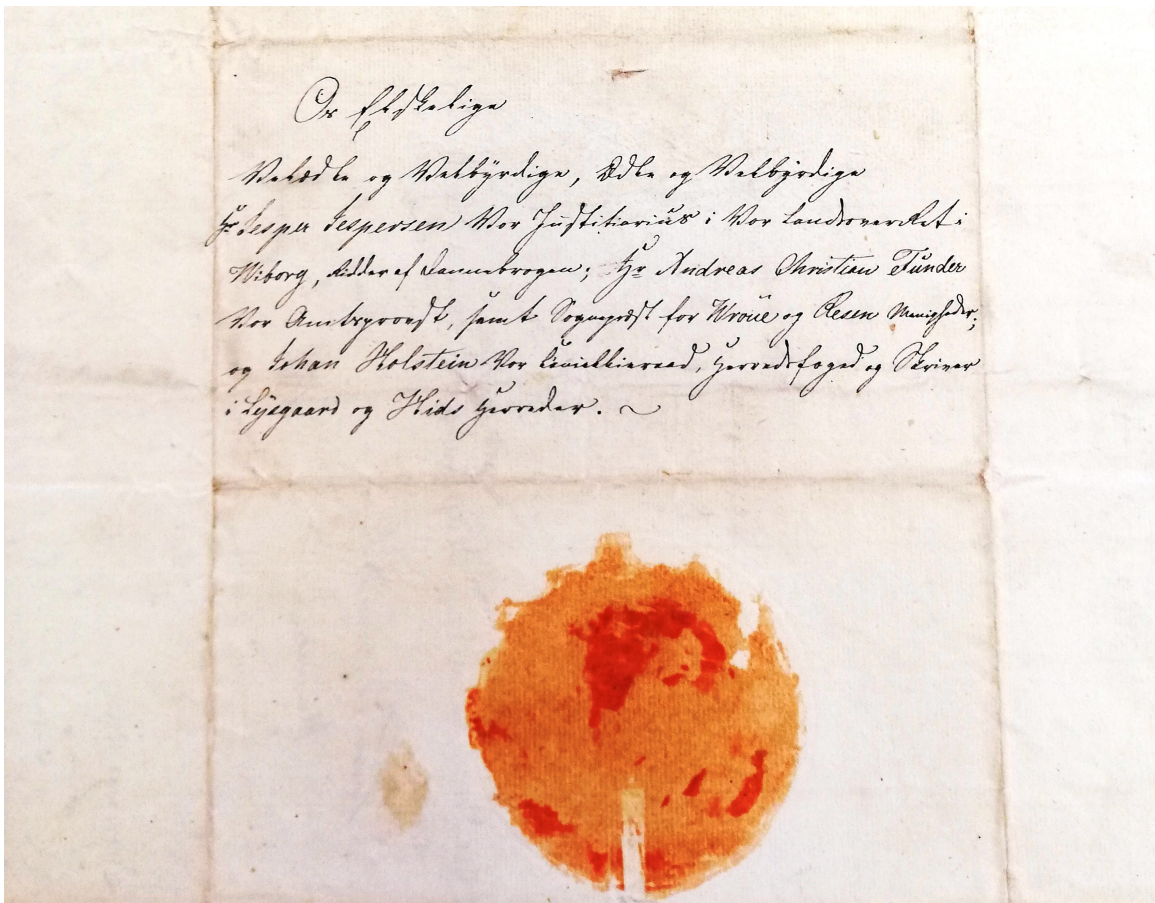 Os Elskelige
Velædle og Velbyrdige, Ædle og Velbyrdige
Hr Jesper Jespersen Vor Justitiarius i Vor Landsoverret i
Wiborg, Ridder af Dannebrogen; Hr Andreas Christian Funder
Vor Amtsprovst, samt Sognepræst for Wroüe og Resen Menigheder;
og Johan Holstein Vor Cancellieraad, Herredsfoged og Skriver
i Lysgaard og Hids Herreder.